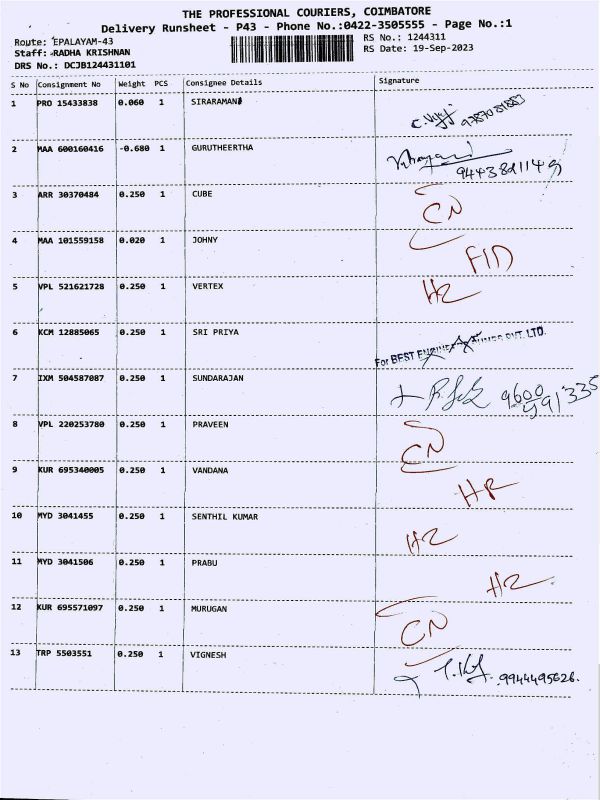 THE PROFESSIONAL COURIERS, COIMBATORE
Delivery Runsheet - P43 - Phone No.:0422-3505555 - Page No.:1
Route: EPALAYAM-43
RS No.: 1244311
Staff: RADHA KRISHNAN
RS Date: 19-Sep-2023
DRS No.: DCJB124431101
S No Consignment No Weight PCS Consignee Details Signature
1 PRO 15433838 0.060 1 SIRARAMAN
2 MAA 600160416 -0.680 1 GURUTHEERTHA
3 ARR 30370484 0.250 1 CUBE CN
4 MAA 101559158 0.020 1 JOHNY
5 VPL 521621728 0.250 1 VERTEX
6 KCM 12885065 0.250 1 SRI PRIYA For BEST PVT. LTD.
7 IXM 504587087 0.250 1 SUNDARAJAN 9600
991335
8 VPL 220253780 0.250 1 PRAVEEN CN
9 KUR 695340005 0.250 1 VANDANA
10 MYD 3041455 0.250 1 SENTHIL KUMAR
11 MYD 3041506 0.250 1 PRABU
12 KUR 695571097 0.250 1 MURUGAN CN
13 TRP 5503551 0.250 1 VIGNESH 9944495626.